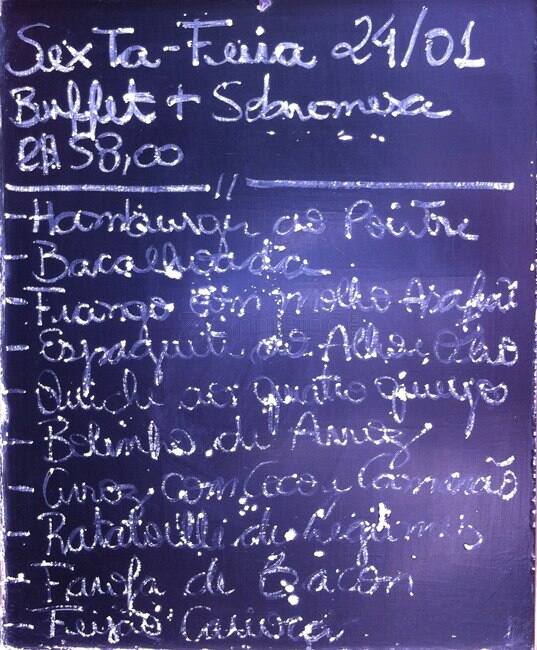 Sexta-Feira 24/01
Buffet + Sobremesa
R$ 58,00
- Hamburger ao Poivre
- Bacalhoada
- Frango com molho Açafrão
- Espaguete ao Alho e Óleo
- Quiche aos quatro queijos
- Bolinho de Arroz
- Arroz com Coco e Camarão
- Ratatouille de Legumes
- Farofa de Bacon
- Feijão Carioca